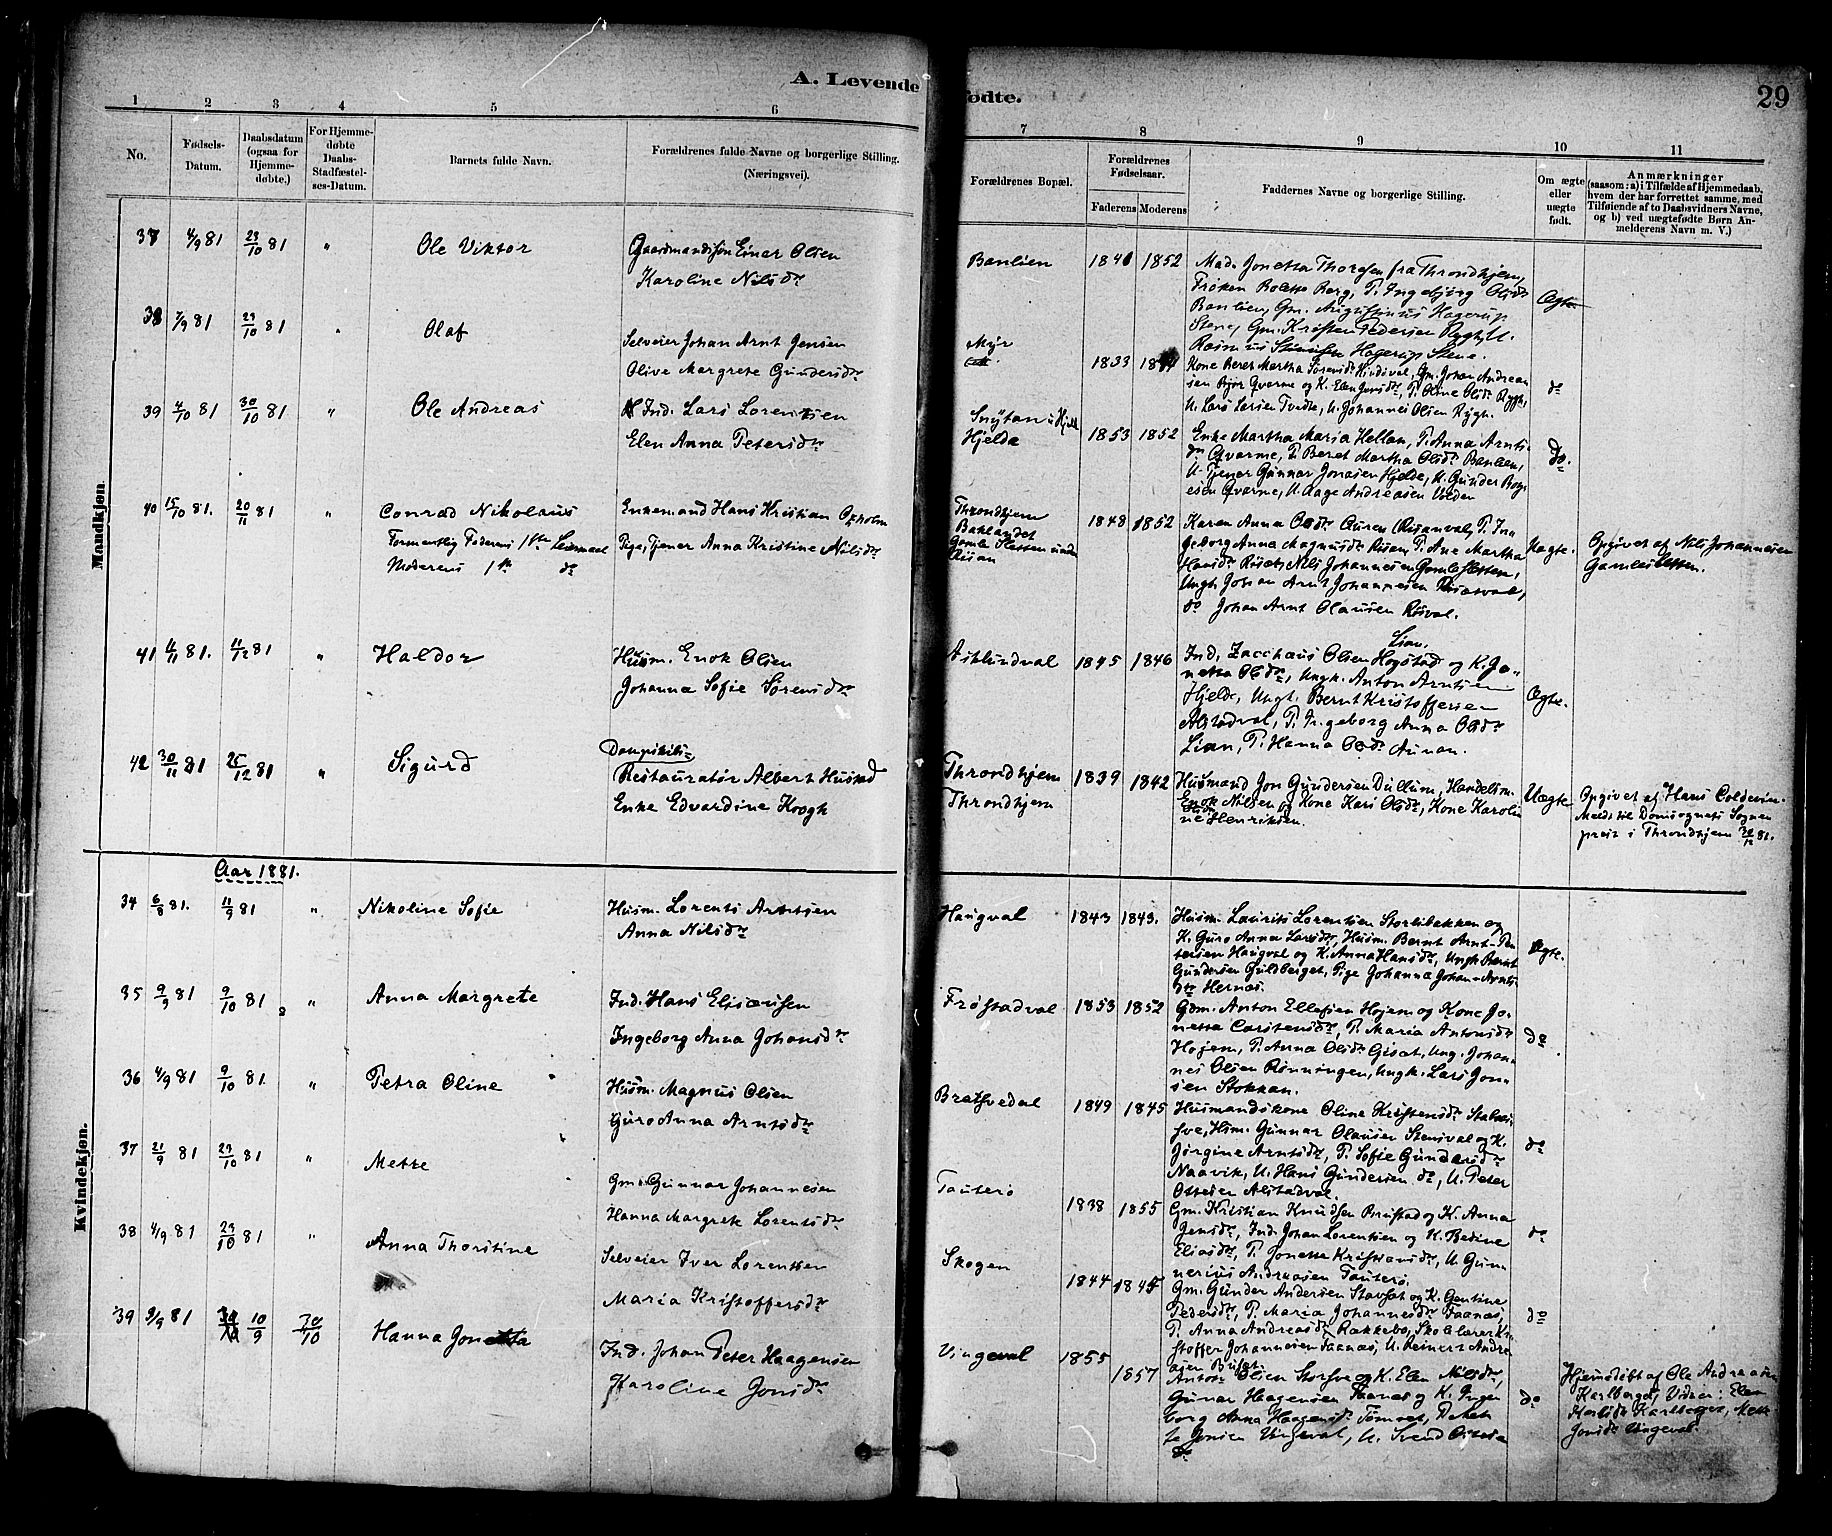 A. Levende
fødte.
29
1 2 3 4 5 6
7 8 9 10 11
No.
Fødsels-
Datum.
Daabsdatum
(ogsaa for
Hjemme-
døbte.)
For Hjemme-
døbte
Daabs-
Stadfæstel-
ses-Datum.
Barnets fulde Navn.
Forældrenes fulde Navne og borgerlige Stilling.
(Næringsvei).
Forældrenes Bopæl.
Forældrenes
Fødselsaar.
Faderens Moderens
Faddernes Navne og borgerlige Stilling.
Om ægte
eller
uægte
født.
Anmærkninger
(saasom: a) i Tilfælde af Hjemmedaab,
hvem der har forrettet samme, med
Tilføiende af to Daabsvidners Navne,
og b) ved uægtefødte Børn An-
melderens Navn m. V.)
Mandkjøn.
37 4/9 81 23/10 81 " Ole Viktor
Gaardmandssøn Einar Olsen
Karoline Nilsdr
Banlien 1841 1852
Mad. Jonetta Thorgsen fra Throndhjem,
Frøken Bolette Berg, P. Ingebjørg Olsdr
Banlien, Gm. Augustinus Hagerup
Stene, Gm. Kristen Pedersen Rygh,
Rasmus Hagerup Stene.
Ægte
38 7/9 81 23/10 81 " Olaf
Selveier Johan Arnt Jensen
Olive Margrete Gundersdr
Myr 1833
Kone Beret Martha Sørensdr, Gm. Johan Andrean
sen Bjør Qvarme og K. Elen Jensdr, P. Oline Olsdr Rygh,
U. Lars Larsen Tvedte, U. Johannes Olsen Rygh.
do
39 4/10 81 30/10 81 " Ole Andreas
Ind. Lars Lorentsen
Elen Anna Petersdr
Hjelde 1853 1852
Enke Martha Maria Hellan, P. Anna Arnts
dr Qvarme, P. Beret Martha Olsdr Banlien,
U. Tjener Gunnar Jonasen Hjelde, U. Gunder Bog
esen Qvarme, U. Aage Andreasen Volden
do.
40 15/10 81. 20/11 81 " Conrad Nikolaus
Formentlig Faderens 1ste Leiermaal
Moderens 1ste do
Enkemand Hans Kristian Oxholm
Pige, Tjener Anna Kristine Nilsdr
Throndhjem
Baklandet
Gamle Sletten under
Risan
1848 1852
Karen Anna Olsdr Auren, P. In
geborg Anna Magnusdr Risan, P. Ane Martha
Hansdr Risan, Nils Johannesen Gamle Sletten,
Ungk. Johan Arnt Johannesen,
do Johan Arnt Olausen Risval.
Uægte.
Opgivet af Nils Johannesen
Gamlesletten.
41 4/11 81. 11/12 81 " Haldor
Husm. Enok Olsen
Johanna Sofie Sørensdr
Asklundval 1845 1846
Lian.
Ind. Zacchæus Olsen Hogstad og K. Jo-
netta Olsdr, Ungk. Anton Arntsen
Hjelde, Ungk. Bernt Kristoffersen
Alstadval, P. Ingeborg Anna Olsdr
Lian, P. Hanna Olsdr Aunan.
Ægte.
42 30/11 81 25/12 81 " Sigurd
Dampskibs-
Restauratør Albert Husted
Enke Edvardine Koogh
Throndhjem
Throndhjem
1839 1842
Husmand Jon Gundersen Dullum, Handelsm.
Enok Nilsen og Kone Kari Olsdr, Kone Karoli
ne Henriksen.
Uægte
Opgivet af Hans Coldevin.
Meldt til Domsognets Sogne
prest i Throndhjem 30/12 81.
Kvindekjøn.
Aar 1881.
34 6/8 81. 11/9 81 " Nikoline Sofie
Husm. Lorents Arntsen
Anna Nilsdr
Haugval 1843 1843.
Husm. Laurits Lorentsen Storlibakken og
K. Guro Anna Larsdr, Husm. Bernt Arnt Pe-
tersen Haugval og K. Anna Hansdr, Ungk Bernt
Gundersen Guldberget, Pige Johanna Johan Arnts
dr Hernæs.
Ægte.
35 9/9 81 9/10 81 " Anna Margrete
Ind. Hans Elisæusen
Ingeborg Anna Johansdr
Frøstadval 1853 1852
Gdm. Anton Ellefsen Hojem og Kone Jo-
netta Carstensdr, P. Maria Antonsdr
Hojem, P. Anna Olsdr, Ung. Johan-
nes Olsen Rønningen, Ungk. Lars Jon-
sen Stokkan.
do
36 4/9 81 9/10 81. " Petra Oline
Husm. Magnus Olsen
Guro Anna Arntsdr
Bratsvedval 1849 1845
Husmandskone Oline Kristensdr
Husm. Gunnar Olausen Stensval og K.
Jørgine Arntsdr, P. Sofie Gundersdr
Naavik, U. Hans Gundersen do, U. Peter
Ottesen Alstadval.
do
37 21/9 81 23/10 81 " Mette
Gm. Gunnar Johannesen
Hanna Margrete Lorentsdr
Tauterø 1838 1855
Gm. Kristian Knudsen Brustad og K. Anna
Jensdr, Ind. Johan Lorentsen og K. Bedine
Eliasdr, P. Jonette Kristiansdr, U. Gun-
nerius Andreasen Tauterø.
do
38 4/9 81 23/10 81 " Anna Thorstine
Selveier Iver Lorentsen
Maria Kristoffersdr
Skogen 1844 1845
Gm. Gunder Andersen Stavset og K. Gentine
Pedersdr, P. Maria Johannesdr Faanes,
P. Anna Andreasdr Rakkebo, Skolelærer Kri
stoffer Johannesen Faanæs, U. Reinert Andre
asen Buset.
do
39 9/9 81 10/9 30/10 Hanna Jonetta
Ind. Johan Peter Haagensen
Karoline Jonsdr
Vingeval 1855 1857
Anton Olsen Storsve og K. Elen Nilsdr,
Gunar Haagensen Faanes og K. Inge
borg Anna Haagensdr Tømvet, Peter
Jonsen Vingeval, U. Svend
do
do
Hjemedøbt af Ole Andreasen
Karlberget, Vidner: Elen
Karlberget, Mette
Jonsdr Vingeval.